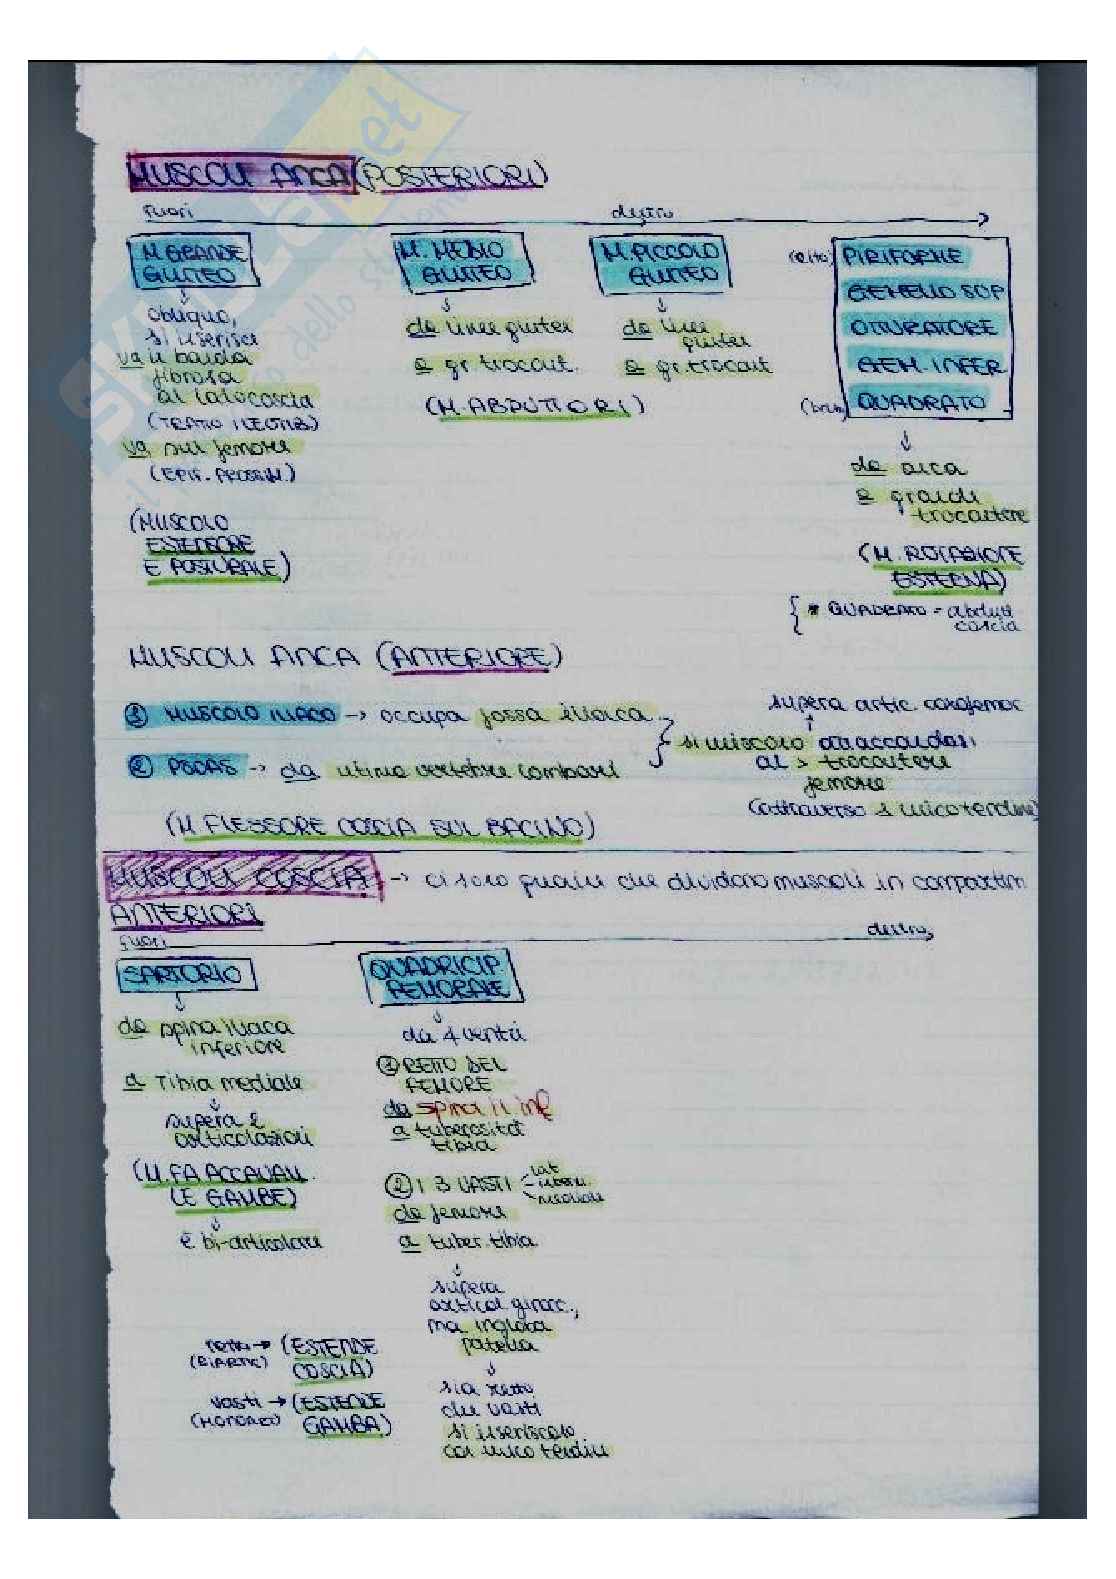 MUSCOLI ANCA (POSTERIORI)
fuori dentro
M. GRANDE
GLUTEO
obliquo,
si inserisce
va in banda
fibrosa
al lato coscia
(TRATTO ILEOTIB.)
va sul femore
(EPIF. PROSSIM.)
(MUSCOLO
ESTENSORE
E POSTURALE)
M. MEDIO
GLUTEO
da linee glutei
a gr. trocant.
M. PICCOLO
GLUTEO
da linee
glutei
a gr. trocant
(M. ABDUTTORI)
(alto) PIRIFORME
GEMELLO SUP
OTTURATORE
GEM. INFER
QUADRATO
da anca
a grande
trocantere
(M. ROTAZIONE
ESTERNA)
* QUADRATO = abduce
coscia
MUSCOLI ANCA (ANTERIORE)
① MUSCOLO ILIACO → occupa fossa iliaca
② PSOAS → da ultime vertebre lombari
si uniscono attaccandosi
al > trocantere
femore
(attraverso 1 unico tendine)
supera artic. coxofemor
(M. FLESSORE COSCIA SUL BACINO)
MUSCOLI COSCIA → ci sono guaine che dividono muscoli in compartim
ANTERIORI
fuori dentro
SARTORIO
da spina iliaca
inferiore
a Tibia mediale
supera 2
articolazioni
(M. FA ACCAVALL.
LE GAMBE)
è bi-articolare
QUADRICIP.
FEMORALE
da 4 ventri
① RETTO DEL
FEMORE
da spina il inf
a tuberosità
tibia
② I 3 VASTI lat
interm
mediale
da femore
a tuber. tibia
supera
articol ginocc.,
ma ingloba
patella
sia retto
che vasti
si inseriscono
con unico tendine
retto → (ESTENDE
(BIARTIC) COSCIA)
vasti → (ESTENDE
(MONOART) GAMBA)